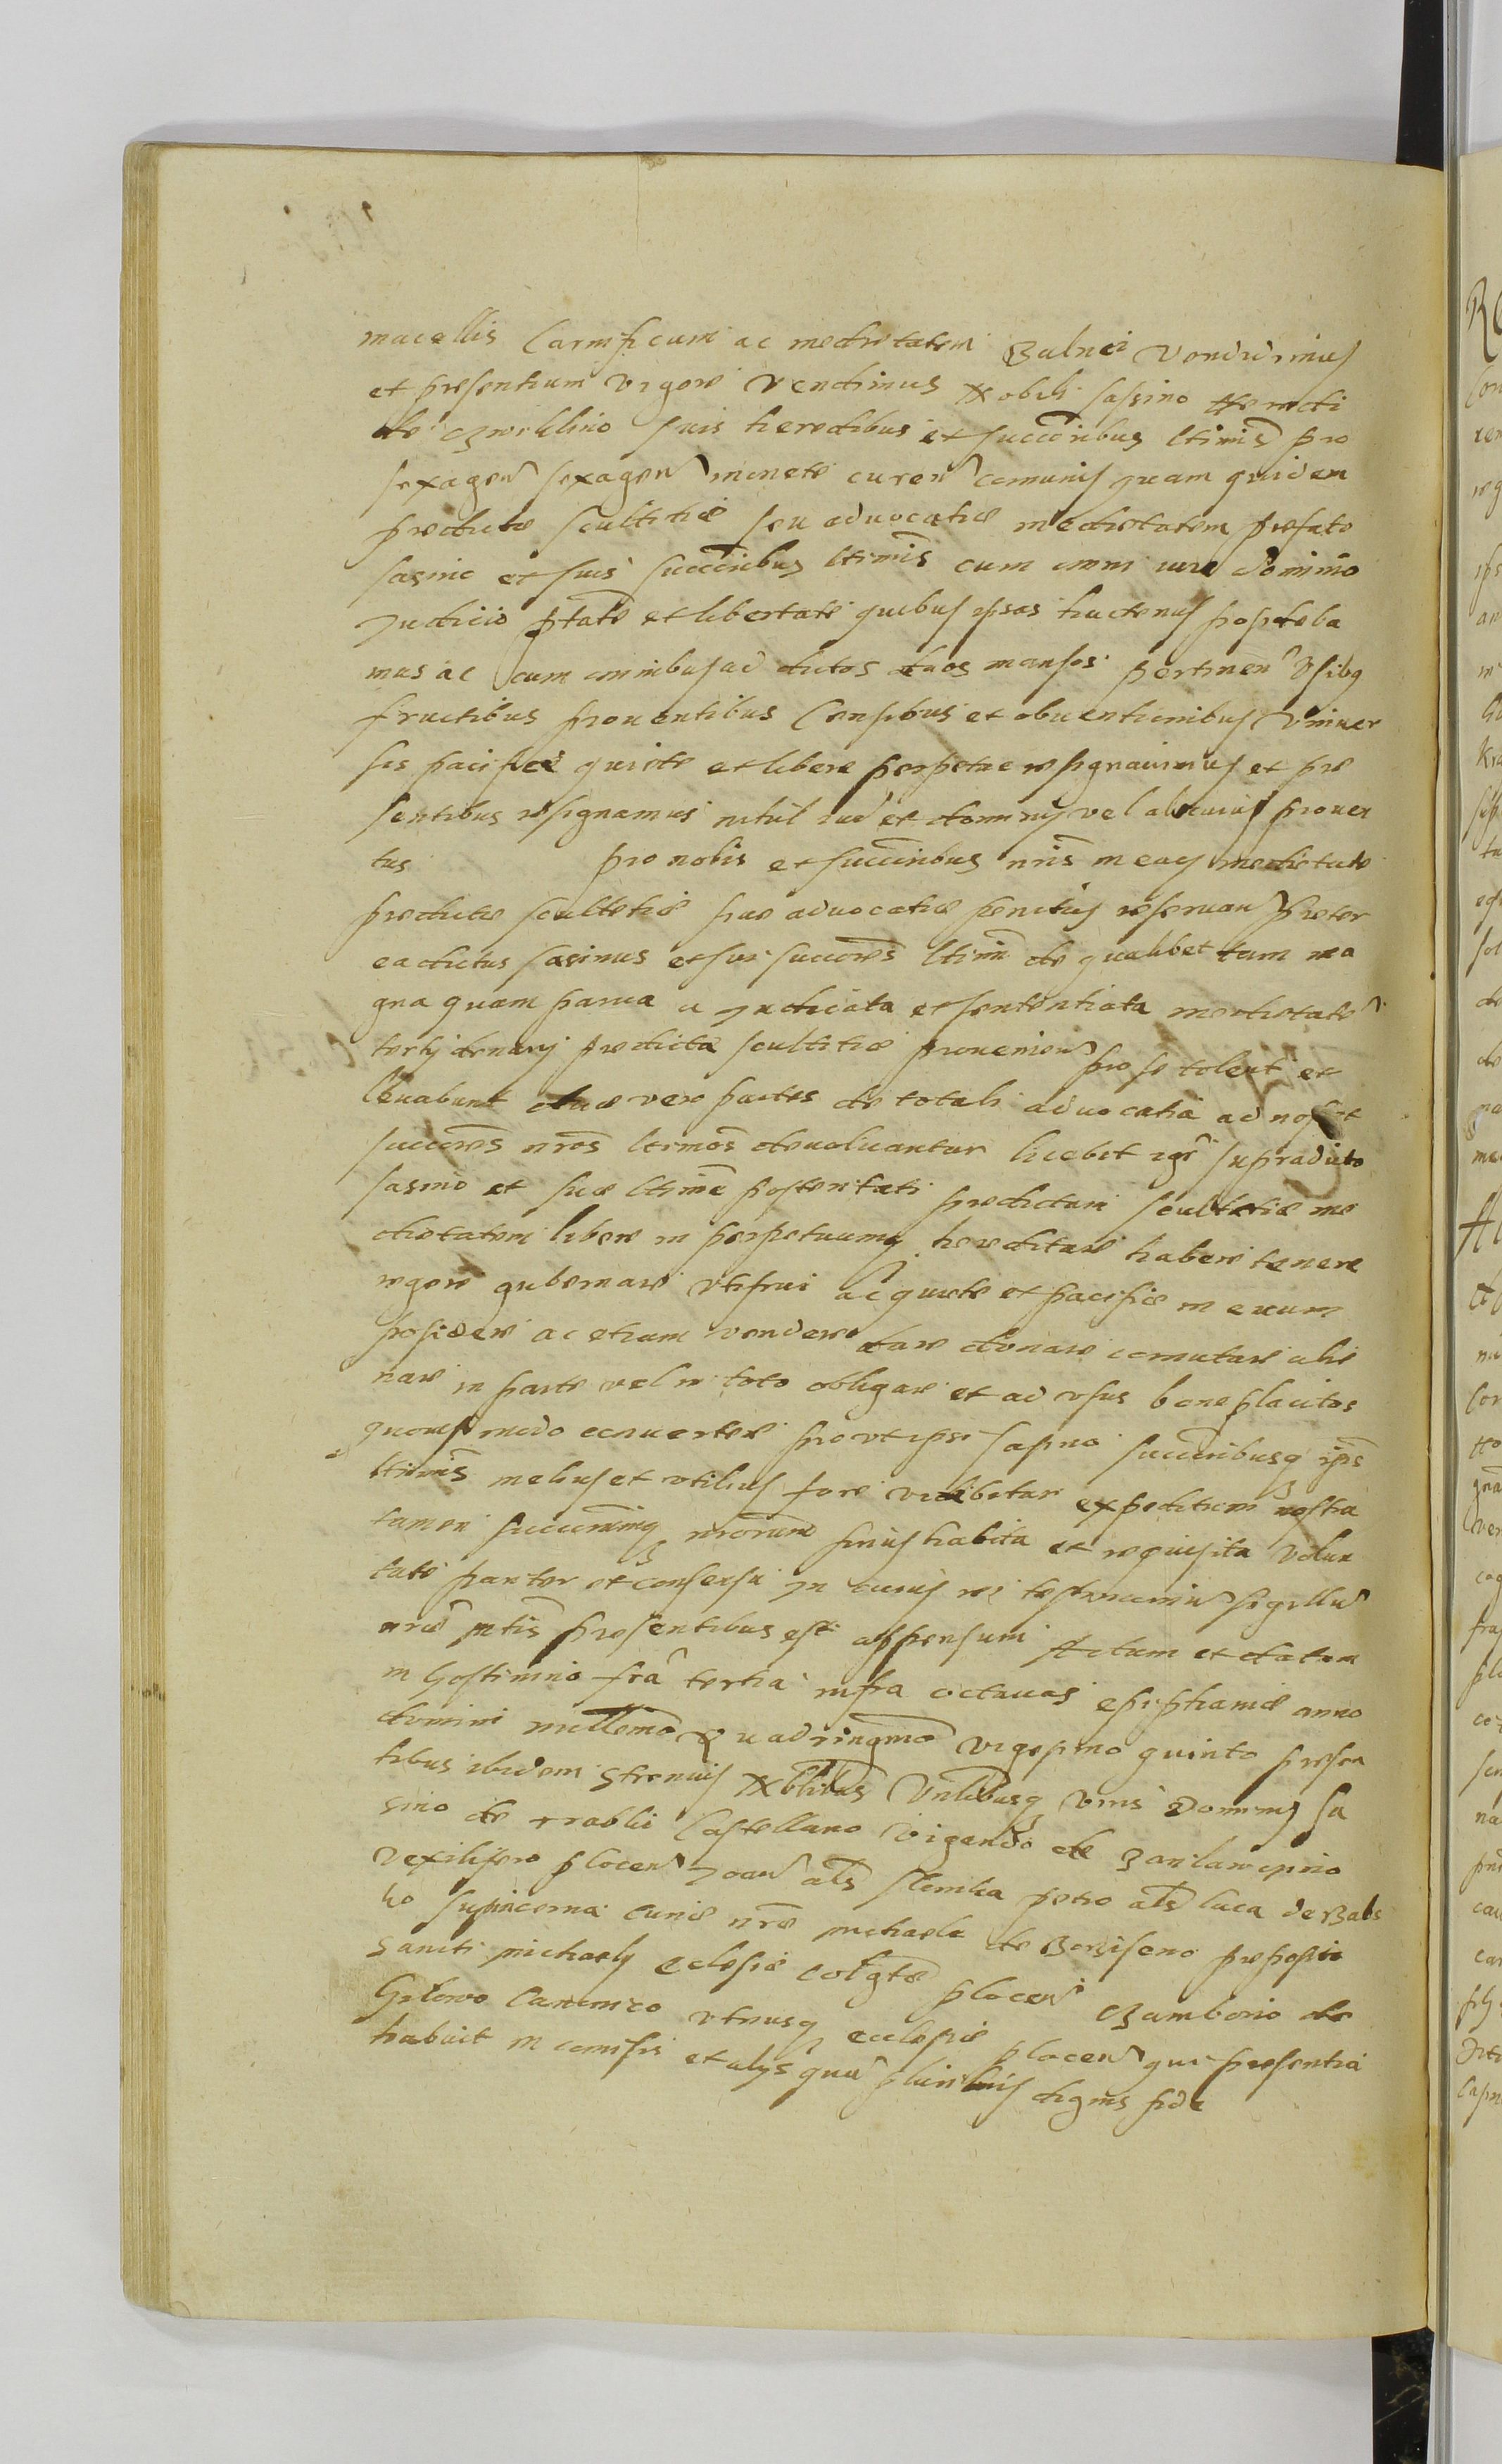 macellis Carnificum ac medietatem Balnei vendidimus
et presentium vigore vendimus Nobili Sassino Heredi
de Czwiklino suis heredibus et succoribus ltimis pro
sexagen sexagen monete curen comunis quam quidem
predicte scultetie seu advocatie medietatem prefato
Sasino et suis succoribus ltimis cum omni iure dominio
Judicio ptate et libertate quibus ipsas hactenus possideba
mus ac cum omnibus ad dictos duos mansos pertinen vsibus
fructibus prouentibus Censibus et obuentionibus vniuer
sis pacifice quiete et libere perpetue resignauimus et pre
sentibus resignamus nihil iuris et dominij vel alicuius prouen
tus pro nobis et succoribus nris in eadem medietate
predicte scultetie siue advocatie penitus reseruan Preter
ea dictus Sasinus et sui succores ltimi de qualibet tam ma
gna quam parua re Judicata et sententiata medietate
tertij denarij predicta scultetie prouenien pro se tolent et
leuabunt due vero partes de totali advocatia ad nos et
succores nros ltimos deuoluantur licebit igr supradicto
Sasino et sue ltime posteritati predictam scultetie me
dietatem libere in perpetuumq hereditarie habere tenere
regere gubernare vtifrui ac quiete et pacifice in euum
possidere ac etiam vendere dare donare comutare alie
nare in parte vel in toto obligare et ad vsus bene placitos
quouis modo conuertere pro vt ipsi Sasino succoribusq ipis
ltimis melius et vtilius fore videbitur expeditum nostra
tamen succorumq nrorum prius habita et requisita volun
tate pariter et consensu In cuius rei testimonium sigillum
nrum ptis presentibus est appensum Actum et datum
in Gostinino fra tertia infra octauas epiphanie anno
domini millemo Quadringmo vigesimo quinto presen
tibus ibidem Strenuis Nobilibus Vnlibusq viris Dominis Sa
sino de Trabki Castellano Vigando de
vexilifero plocen Joan als Slomka petro als luca de
ko supincerna Curie nre michaele de Borziseno preposito
Sancti michaelis eclesie colgte plocen Bamborio de
Gitowo Canonico vtriusq ecclesie plocen qui presentia
habuit in comissis et alijs quam pluribus dignis fide